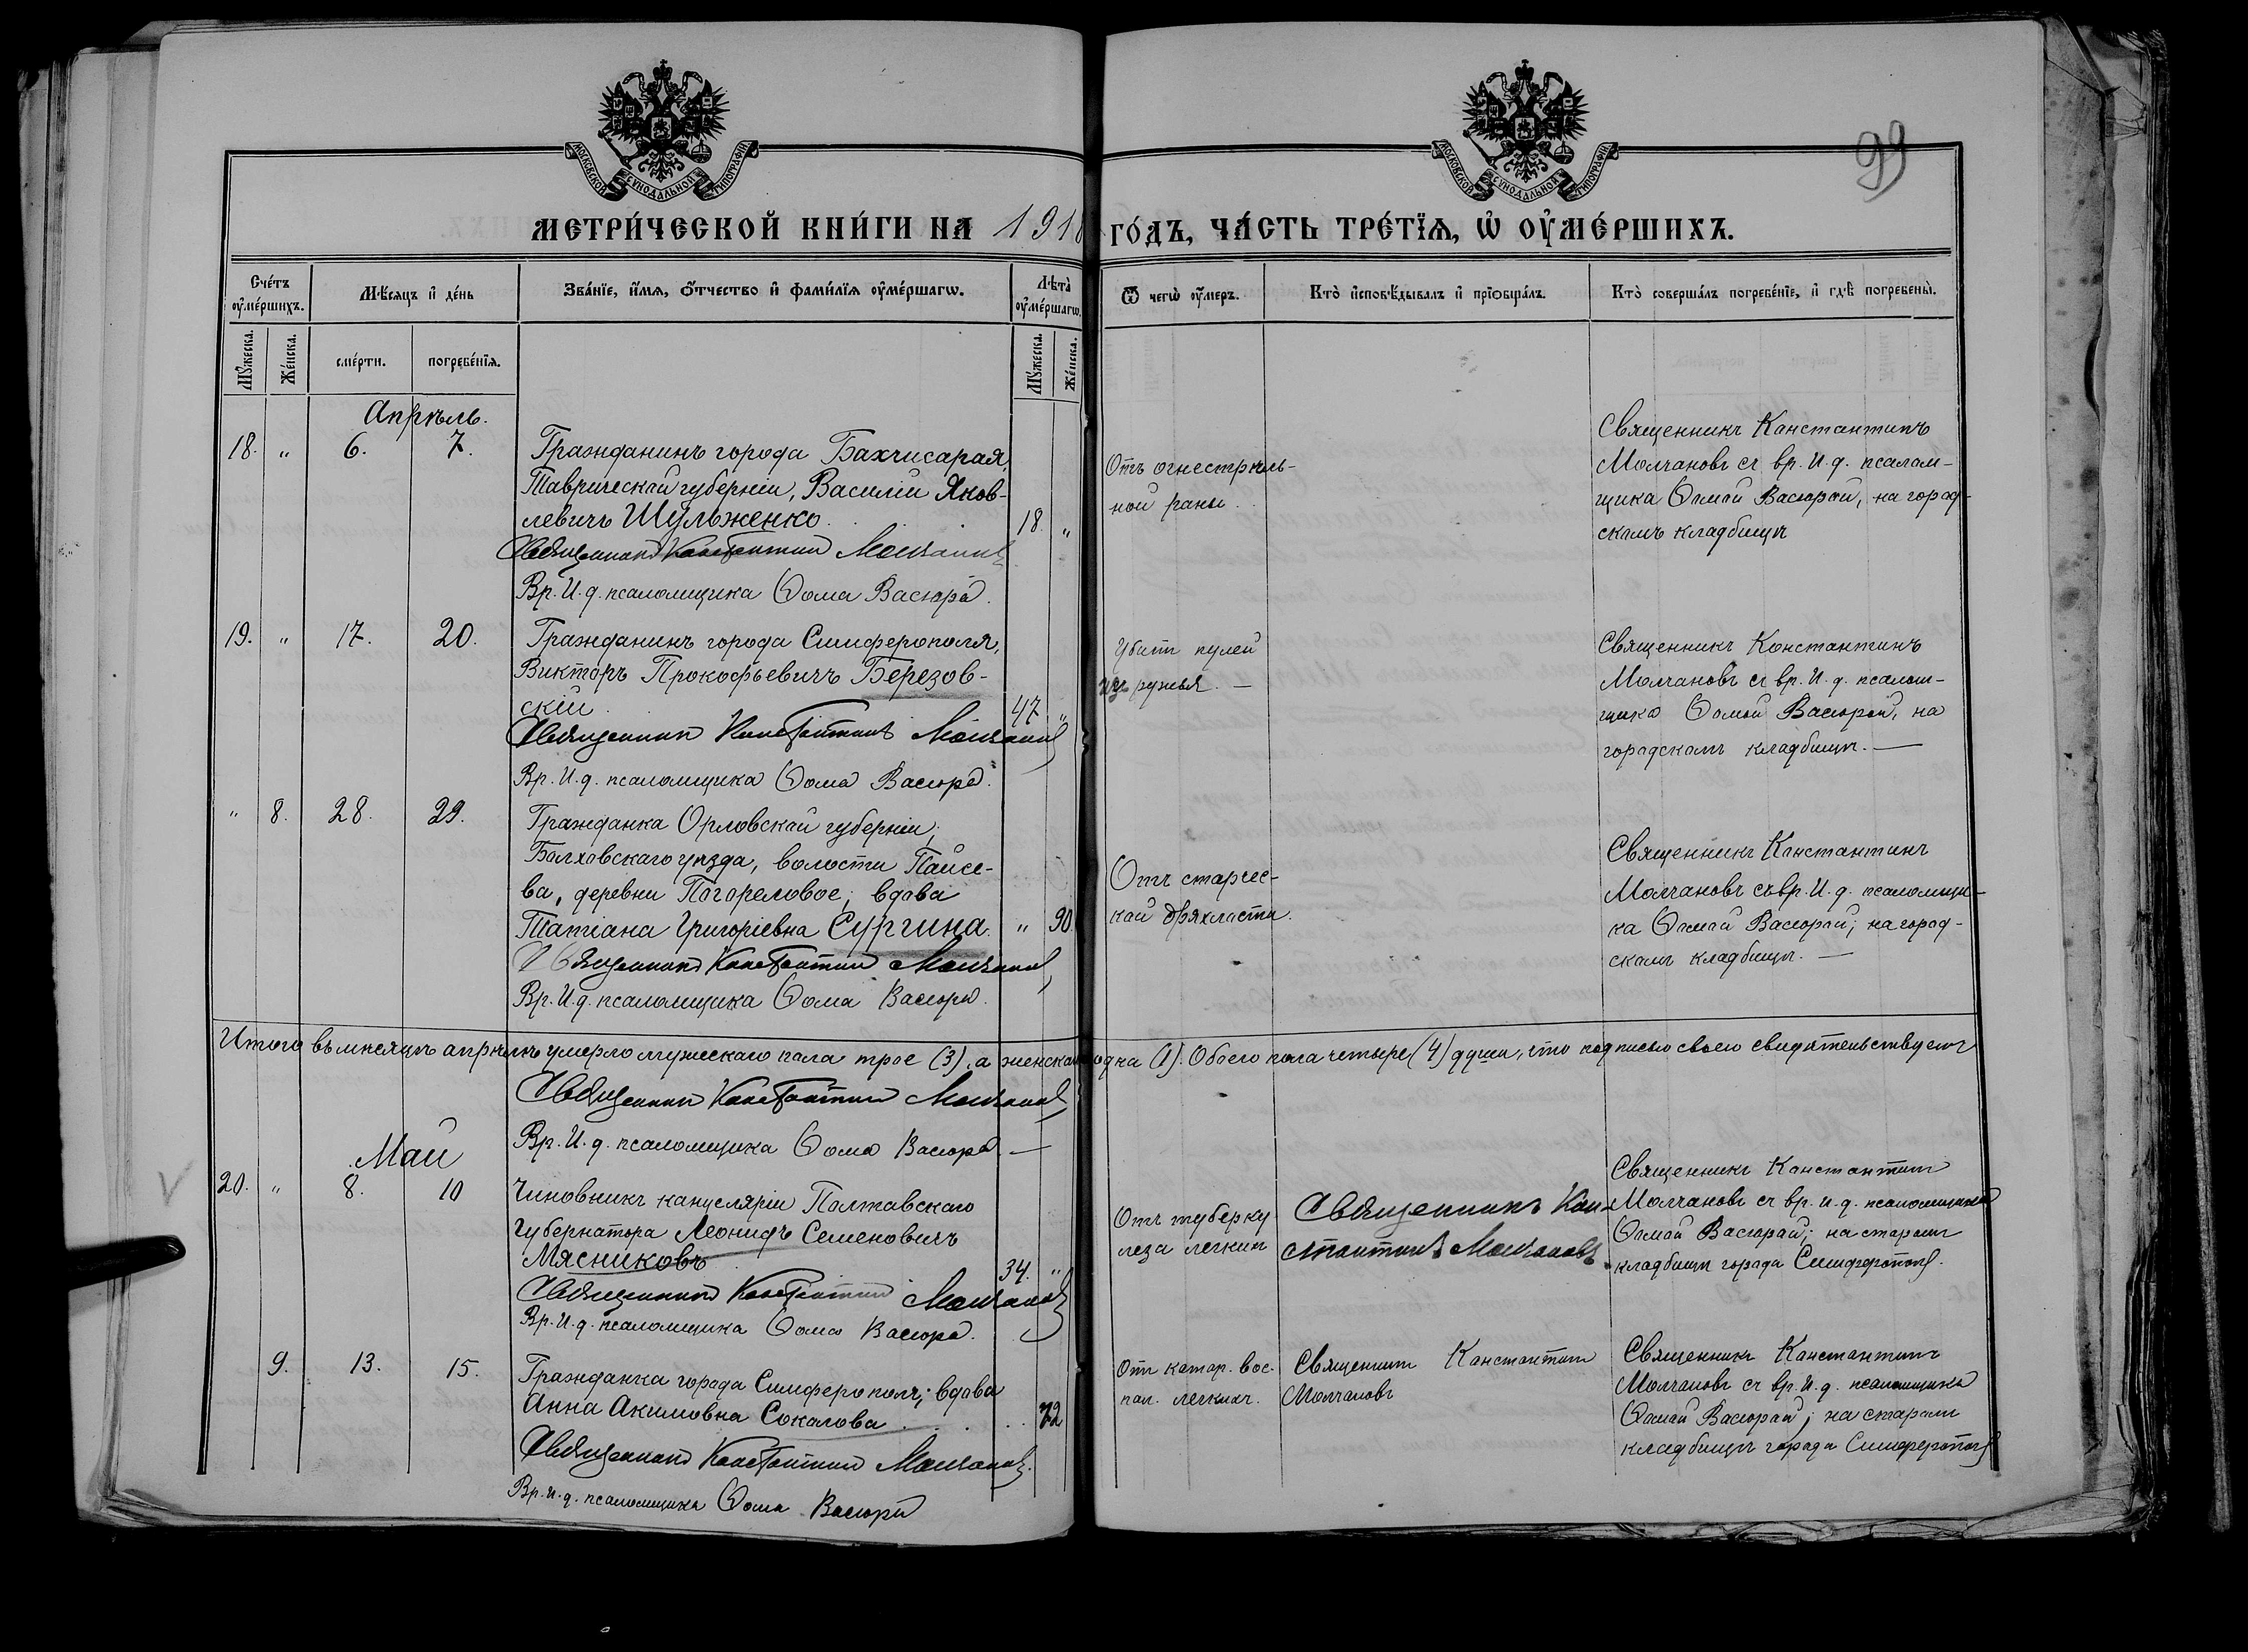 МОСКОВСКОЙ СѴНОДАЛЬНОЙ ТИПОГРАФІИ
МОСКОВСКОЙ СѴНОДАЛЬНОЙ ТИПОГРАФІИ
99
МЕТРИ́ЧЕСКОЙ КНИ́ГИ НА 1918 ГО́ДЪ, ЧА́СТЬ ТРЕ́ТЇѦ, Ѡ҆ ОУ҆МЕ́РШИХЪ.
Сче́тъ оу҆ме́ршихъ.
Мѣ́сяцъ и҆ де́нь
Зва́нїе, и҆́мѧ, ѻ҆́тчество и҆ фами́лїѧ оу҆ме́ршагѡ.
Лѣ́та оу҆ме́ршагѡ.
Ѿ чегѡ̀ оу҆́меръ.
Кто̀ и҆сповѣ́дывалъ и҆ прїѡбща́лъ.
Кто̀ соверша́лъ погребе́нїе, и҆ гдѣ̀ погребены̀.
Му́жеска. Же́нска. сме́рти. погребе́нїѧ. Му́жеска. Же́нска.
Апрѣль.
18. " 6. 7.
Гражданинъ города Бахчисарая,
Таврической губерніи, Василій Яков-
левичъ Шульженко. 18. "
Священникъ Константинъ Молчановъ
Вр. И. д. псаломщика Ѳома Васюра.
Отъ огнестрѣль-
ной раны.
Священникъ Константинъ
Молчановъ съ вр. И. д. псалом-
щика Ѳомой Васюрой, на город-
скомъ кладбищѣ
19. " 17. 20.
Гражданинъ города Симферополя,
Викторъ Прокофьевичъ Березов-
скій. 47 "
Священникъ Константинъ Молчановъ
Вр. И. д. псаломщика Ѳома Васюра.
Убитъ пулей
изъ ружья. —
Священникъ Константинъ
Молчановъ съ вр. И. д. псалом-
щика Ѳомой Васюрой, на
городскомъ кладбищѣ. —
" 8. 28. 29.
Гражданка Орловской губерніи,
Болховскаго уѣзда, волости Пайсе-
ва, деревни Погореловое, вдова
Татіана Григоріевна Сургина. " 90
Священникъ Константинъ Молчановъ
Вр. И. д. псаломщика Ѳома Васюра.
Отъ старчес-
кой дряхлости.
Священникъ Константинъ
Молчановъ съ вр. И. д. псаломщи-
ка Ѳомой Васюрой; на город-
скомъ кладбищѣ. —
Итого въ мѣсяцѣ апрѣлѣ умерло мужескаго пола трое (3), а женскаго одна (1). Обоего пола четыре (4) души, что подписью своею свидѣтельствуемъ
Священникъ Константинъ Молчановъ
Вр. И. д. псаломщика Ѳома Васюра —
Май
20. " 8. 10
Чиновникъ канцеляріи Полтавскаго
Губернатора Леонидъ Семеновичъ
Мясниковъ 34. "
Священникъ Константинъ Молчановъ
Вр. И. д. псаломщика Ѳома Васюра.
Отъ туберку
леза легкихъ
Священникъ Кон-
стантинъ Молчановъ
Священникъ Константинъ
Молчановъ съ вр. И. д. псаломщика
Ѳомой Васюрой; на старомъ
кладбищѣ города Симферополя.
9. 13. 15.
Гражданка города Симферополя; вдова
Анна Акимовна Соколова 72
Священникъ Константинъ Молчановъ.
Вр. И. д. псаломщика Ѳома Васюра
Отъ катар. вос-
пал. легкихъ.
Священникъ Константинъ
Молчановъ
Священникъ Константинъ
Молчановъ съ вр. И. д. псаломщика
Ѳомой Васюрой; на старомъ
кладбищѣ города Симферополя